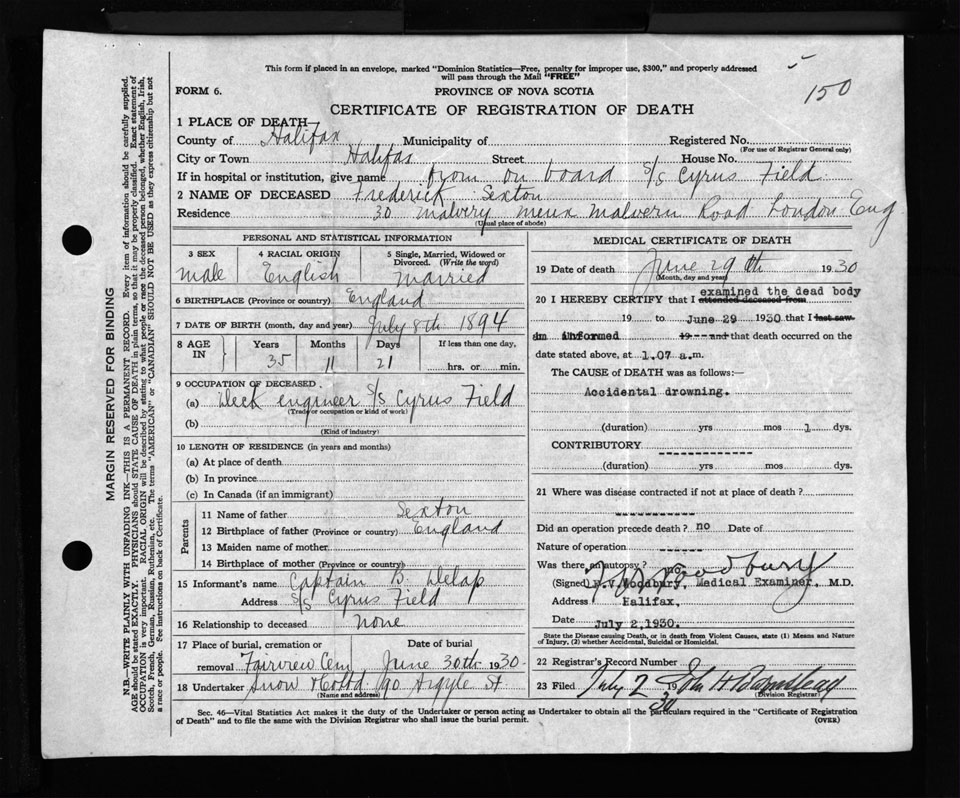 This form if placed in an envelope, marked "Dominion Statistics—Free, penalty for improper use, $300," and properly addressed
will pass through the Mail "FREE"
150
FORM 6.
PROVINCE OF NOVA SCOTIA
CERTIFICATE OF REGISTRATION OF DEATH
1 PLACE OF DEATH
County of Halifax Municipality of Registered No.
(For use of Registrar General only)
City or Town Halifax Street House No.
If in hospital or institution, give name from on board S/S Cyrus Field
2 NAME OF DECEASED Frederick Sexton
Residence 30 Malvern Road London Eng
(Usual place of abode)
PERSONAL AND STATISTICAL INFORMATION
3 SEX
male
4 RACIAL ORIGIN
English
5 Single, Married, Widowed or
Divorced. (Write the word)
Married
6 BIRTHPLACE (Province or country) England
7 DATE OF BIRTH (month, day and year) July 8th 1894
8 AGE IN
Years Months Days If less than one day,
35 11 21 hrs. or min.
9 OCCUPATION OF DECEASED.
(a) Deck engineer S/S Cyrus Field
(Trade or occupation or kind of work)
(b)
(Kind of industry)
10 LENGTH OF RESIDENCE (in years and months)
(a) At place of death
(b) In province
(c) In Canada (if an immigrant)
Parents
11 Name of father Sexton
12 Birthplace of father (Province or country) England
13 Maiden name of mother
14 Birthplace of mother (Province or country)
15 Informant's name Captain B. Delap
Address S/S Cyrus Field
16 Relationship to deceased None
17 Place of burial, cremation or Date of burial
removal Fairview Cem June 30th 1930
18 Undertaker Snow & Co Ltd 90 Argyle St
(Name and address)
MEDICAL CERTIFICATE OF DEATH
19 Date of death June 29th 1930
(Month, day and year)
examined the dead body
20 I HEREBY CERTIFY that I attended deceased from
19 to June 29 1930 that I last saw
am informed 19 and that death occurred on the
date stated above, at 1.07 a.m.
The CAUSE of DEATH was as follows:—
Accidental drowning.
(duration) yrs mos 1 dys.
CONTRIBUTORY
(duration) yrs mos dys.
21 Where was disease contracted if not at place of death?
Did an operation precede death? no Date of
Nature of operation
Was there autopsy? no
(Signed) F.V. Woodbury, Medical Examiner, M.D.
Address Halifax,
Date July 2,1930.
State the Disease causing Death, or in death from Violent Causes, state (1) Means and Nature
of Injury, (2) whether Accidental, Suicidal or Homicidal.
22 Registrar's Record Number
23 Filed July 2 1930 John H Barnstead
(Division Registrar)
Sec. 46—Vital Statistics Act makes it the duty of the Undertaker or person acting as Undertaker to obtain all the particulars required in the "Certificate of Registration
of Death" and to file the same with the Division Registrar who shall issue the burial permit.
(OVER)
MARGIN RESERVED FOR BINDING
N.B.—WRITE PLAINLY WITH UNFADING INK—THIS IS A PERMANENT RECORD. Every item of information should be carefully supplied.
AGE should be stated EXACTLY. PHYSICIANS should STATE CAUSE OF DEATH in plain terms, so that it may be properly classified. Exact statement of
OCCUPATION is very important. RACIAL ORIGIN will be described by stating to what people or race the deceased person belonged, whether English, Irish,
Scotch, French, German, Russian, Ruthenian, etc. The terms "AMERICAN" or "CANADIAN" SHOULD NOT BE USED as they express citizenship but not
a race or people. See instructions on back of Certificate.